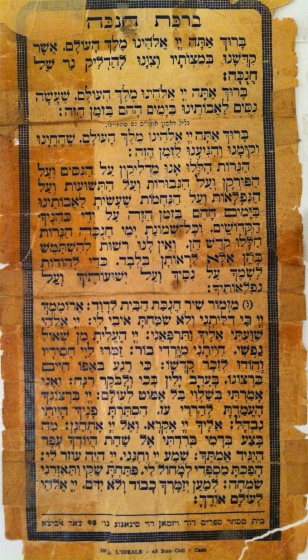 ברכת חנכה
ברוך אתה יי אלהינו מלך העולם, אשר
קדשנו במצותיו וצונו להדליק נר של
חנכה:
ברוך אתה יי אלהינו מלך העולם, שעשה
נסים לאבותינו בימים ההם בזמן הזה:
ברוך אתה יי אלהינו מלך העולם, שהחינו
וקימנו והגיענו לזמן הזה:
הנרות הללו אנו מדליקין על הנסים ועל
הפורקן ועל הגבורות ועל התשועות ועל
הנפלאות ועל הנחמות שעשית לאבותינו
בימים ההם בזמן הזה על ידי כהניך
הקדושים. וכל שמונת ימי חנכה הנרות
הללו קדש הן, ואין לנו רשות להשתמש
בהן אלא לראותן בלבד, כדי להודות
לשמך על נסיך ועל ישועתיך ועל
נפלאותיך:
מזמור שיר חנכת הבית לדוד: ארוממך
יי כי דליתני ולא שמחת איבי לי: יי אלהי
שועתי אליך ותרפאני: יי העלית מן שאול
נפשי חייתני מיורדי בור: זמרו ליי חסידיו
והודו לזכר קדשו: כי רגע באפו חיים
ברצונו, בערב ילין בכי ולבקר רנה: ואני
אמרתי בשלוי בל אמוט לעולם: יי ברצונך
העמדת להררי עז, הסתרת פניך הייתי
נבהל: אליך יי אקרא, ואל יי אתחנן: מה
בצע בדמי ברדתי אל שחת היודך עפר
היגיד אמתך: שמע יי וחנני, יי היה עוזר לי:
הפכת מספדי למחול לי, פתחת שקי ותאזרני
שמחה: למען יזמרך כבוד ולא ידם, יי אלהי
לעולם אודך:
בית מסחר ספרים דוד וזימאן רוי סינאגוג נו' 98
Imp. L'IDEALE